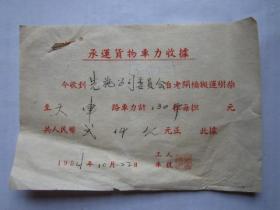 承運貨物車力收據
今收到先施公司委員会自老閘橋搬運樹柴
至天津路車力計130件每担 元
共人民幣 元正 此據
1954年10月22日
工人
車號